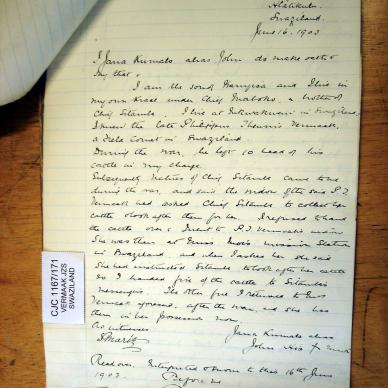 Swaziland.
June 16. 1903
I Jana Kumalo alias John do make oath &
say that :
I am the son of and I live in
my own Kraal under Chief Maboko, a brother of
Chief Sitambi. I live at in Swaziland
I knew the late Philippus Theunis Vermaak,
a Field Cornet in Swaziland.
During the war, he left 10 head of his
cattle in my charge
Subsequently natives of Chief Sitambi came to me
during the war, and said the widow of the said P.T.
Vermaak had asked Chief Sitambi to collect her
cattle & look after them for her. I refused to hand
the cattle over & went to P.T. Vermaak's widow
She was then at mission station
in Swaziland, and when I asked her she said
She had instructed Sitambi to look after her cattle
so I handed five of the cattle to Sitambi's
messengers. The other five I returned to Mrs
Vermaak , after the war, and she has
them in her possession now.
As witnesses
Jana Kumalo alias
John His X mark
Read over, Interpreted & sworn to this 16th June
1903. Before me
CJC 1167/171
VERMAAK JZS
SWAZILAND